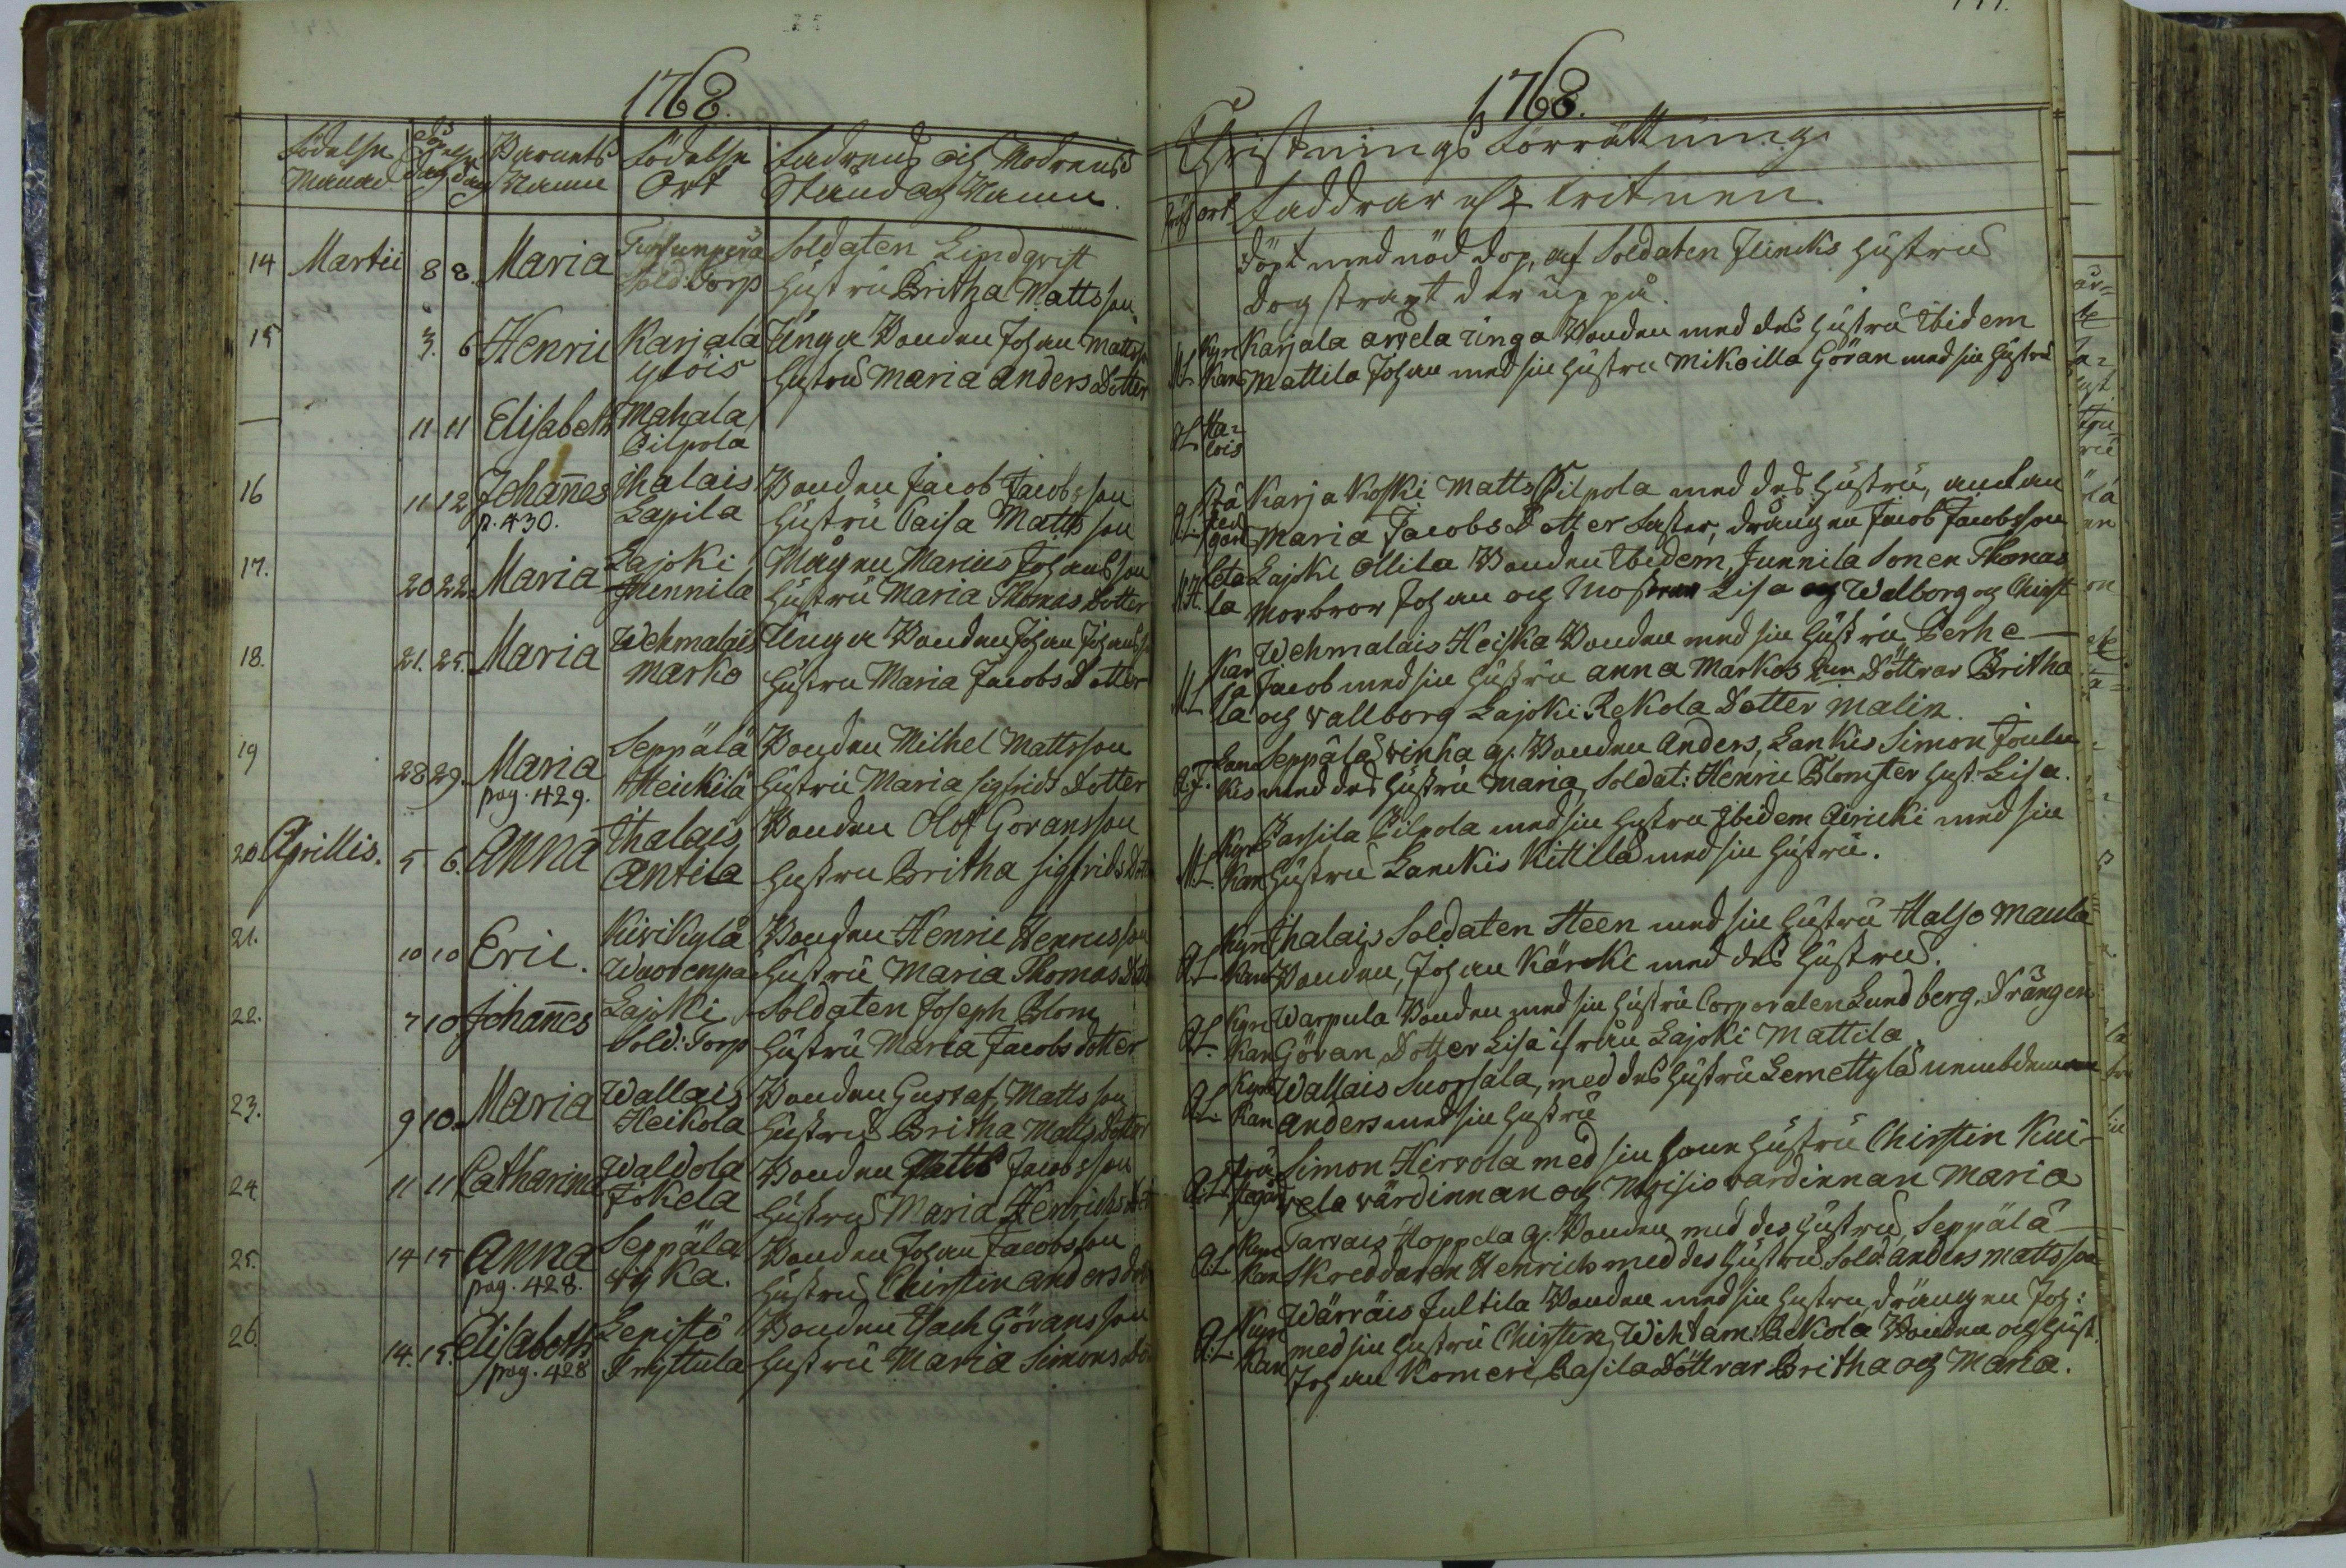 1768.
Födelse Månad
Födelse dag
Döpelse dag
Barnets Namn
Födelse Ort
Fadrens och Modrens Stånd och Namn.
14 Martii 8 8. Maria Sold. Torp Soldaten Lindqvist
Hustru Britha Mattsson
15 3. 6 Henric Karjala Unga Bonden Johan Mattsson
yröis Hustru Maria Anders Dotter
11 11 Elisabeth Mahala
Pilpola
16 11 12 Johannes Thalais Bonden Jacob Jacobsson
p. 430. Lapila Hustru Caisa Mattsson
17. 20 22. Maria Lajoki Mågen Marcus Johansson
Junnila Hustru Maria Thomas Dotter
18. 21. 25. Maria Wehmalais Unga Bonden Johan Johansson
Marko Hustru Maria Jacobs Dotter
19 28 29. Maria Seppälä Bonden Michel Mattsson
pag. 429. Heickilä Hustru Maria Sigfrids Dotter
20 Aprillis. 5 6. Anna Thalais Bonden Olof Göransson
Antila Hustru Britha Sigfrids Dot
21. 10 10 Eric. Kivikylä Bonden Henric Henricsson
Wuorenpä Hustru Maria Thomas Dott
22. 7 10 Johannes Lajoki Soldaten Joseph Blom
Sold: Torp Hustru Maria Jacobs dotter
23. 9 10. Maria Wallais Bonden Gustaf Mattsson
Heikola Hustru Britha Matts Dotter
24. 11 11 Catharina Waldola Bonden Matts Jacobsson
Jokela Hustru Maria Henrichs dot
25. 14 15 Anna Seppälä Bonden Johan Jacobsson
pag. 428. yka. Hustru Chirstin Anders dott
26. 14. 15. Elisabeth Lepistö Bonden Isach Göransson
pag. 428 Hustru Maria Simons Do
1768.
Christnings Förrättning.
Präst ort Faddrar eller Witnen.
Döpt med nöd dop, af Soldaten Flincks hustru
Dog straxt der uppå.
M.L. Kyr Karjala Arvela Unga Bonden med des hustru Ibidem
Kan Mattila Johan med sin hustru Mikoilla Göran med sin hustru
G.L. Ha=
lois
G.L. Karja Koski Matts Pilpola med des hustru, andan
gård Maria Jacobs Dotter Saster, drängen Jacob Jacobsson
Lajoki Ollila Bonden Ibidem, Junnila Sonen Thomas
la Morbror Johan och Lisa og Walborg og Chirst
M.L. Kar Wehmalais Heiska Bonden med sin hustru Perhe
ja Jacob med sin hustru Anna Markos Döttrar Britha
la och Wallborg Lajoki Rekola Dotter Malin.
G.J. Lan Seppälä Winha g. Bonden Anders, Lankis Simon Joulu
kis med des hustru Maria, Soldat: Henric Blomster hust. Lisa.
M.L. Kyr Parsila Pilpola med sin hustru Ibidem Airicki med sin
Kan hustru Lanckis Kittilä med sin hustru.
G.L. Kyr Thalais Soldaten Steen med sin hustru Halso Maula
Kan Bonden, Johan Kärcki med des hustru.
G.L. Kyr Warpula Bonden med sin hustru Corporalen Lundberg, Drängen
Kan Göran, Dotter Lisa ifrån Lajoki Mattila
G.L. Kyr Wallais Suorsala, med des hustru Lemettylä
Kan Anders med sin hustru
G.L. Simon Hirvola med sin hustru Chirstin Kui-
vela värdinnan och värdinnan Maria
G.L. Kyr Tarvais Hoppela g. Bonden med des hustru Seppälä
Kan Skreddaren Henrich med des hustru Sold. Anders Mattsson
G.L. Kyr Wärräis Jultila Bonden med sin hustru, drängen Joh:
Kan med sin hustru Chirstin, Wihtam: Rekola Bonden och hust.
Johan Komeri, Pasila Döttrar Britha och Maria.